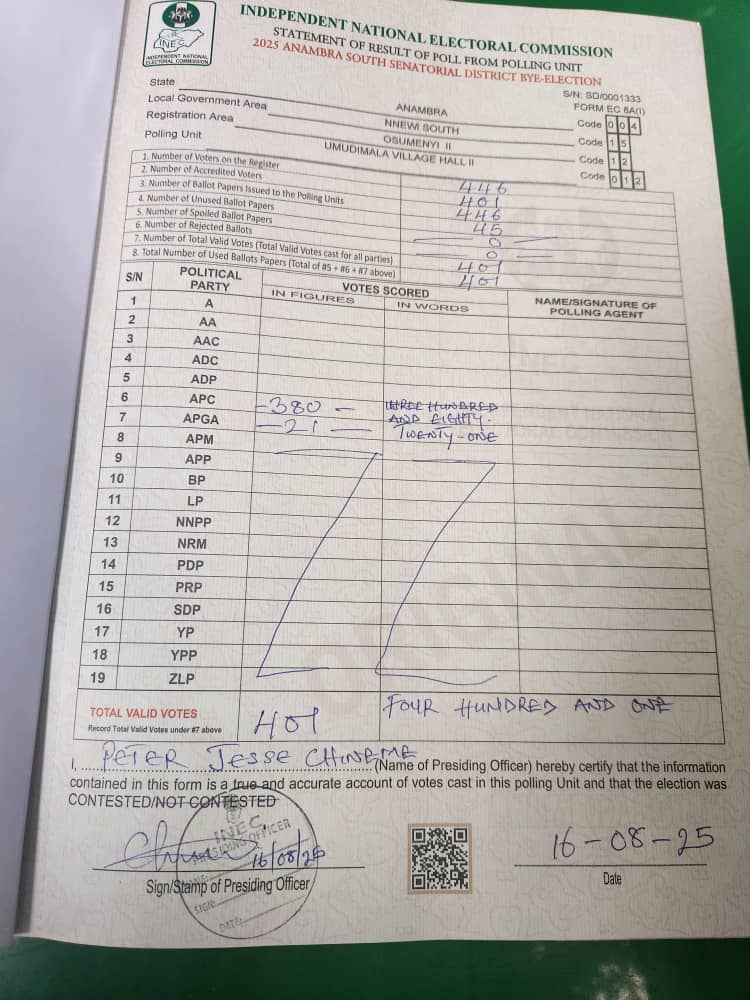 INEC
INDEPENDENT NATIONAL
ELECTORAL COMMISSION
INDEPENDENT NATIONAL ELECTORAL COMMISSION
STATEMENT OF RESULT OF POLL FROM POLLING UNIT
2025 ANAMBRA SOUTH SENATORIAL DISTRICT BYE-ELECTION
S/N: SD/0001333
FORM EC 8A(I)
State ANAMBRA Code 0 0 4
Local Government Area NNEWI SOUTH Code 1 5
Registration Area OSUMENYI II Code 1 2
Polling Unit UMUDIMALA VILLAGE HALL II Code 0 1 2
1. Number of Voters on the Register 446
2. Number of Accredited Voters 401
3. Number of Ballot Papers Issued to the Polling Units 446
4. Number of Unused Ballot Papers 45
5. Number of Spoiled Ballot Papers 0
6. Number of Rejected Ballots 0
7. Number of Total Valid Votes (Total Valid Votes cast for all parties) 401
8. Total Number of Used Ballots Papers (Total of #5 + #6 + #7 above) 401
S/N POLITICAL PARTY VOTES SCORED NAME/SIGNATURE OF POLLING AGENT
IN FIGURES IN WORDS
1 A
2 AA
3 AAC
4 ADC
5 ADP
6 APC -380 - THREE HUNDRED AND EIGHTY.
7 APGA - 21 - TWENTY-ONE
8 APM
9 APP
10 BP
11 LP
12 NNPP
13 NRM
14 PDP
15 PRP
16 SDP
17 YP
18 YPP
19 ZLP
TOTAL VALID VOTES 401 FOUR HUNDRED AND ONE
Record Total Valid Votes under #7 above
I, PETER JESSE CHINEME (Name of Presiding Officer) hereby certify that the information
contained in this form is a true and accurate account of votes cast in this polling Unit and that the election was
CONTESTED/NOT CONTESTED
INEC
PRESIDING OFFICER
16/08/25
SIGN:
DATE:
16-08-25
Sign/Stamp of Presiding Officer
Date